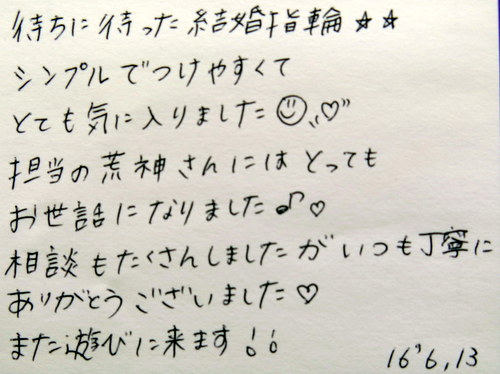 待ちに待った結婚指輪☆☆
シンプルでつけやすくて
とても気に入りました☺♡"
担当の荒神さんにはとっても
お世話になりました♪♡
相談もたくさんしましたがいつも丁寧に
ありがとうございました♡
また遊びに来ます!!
16'6,13